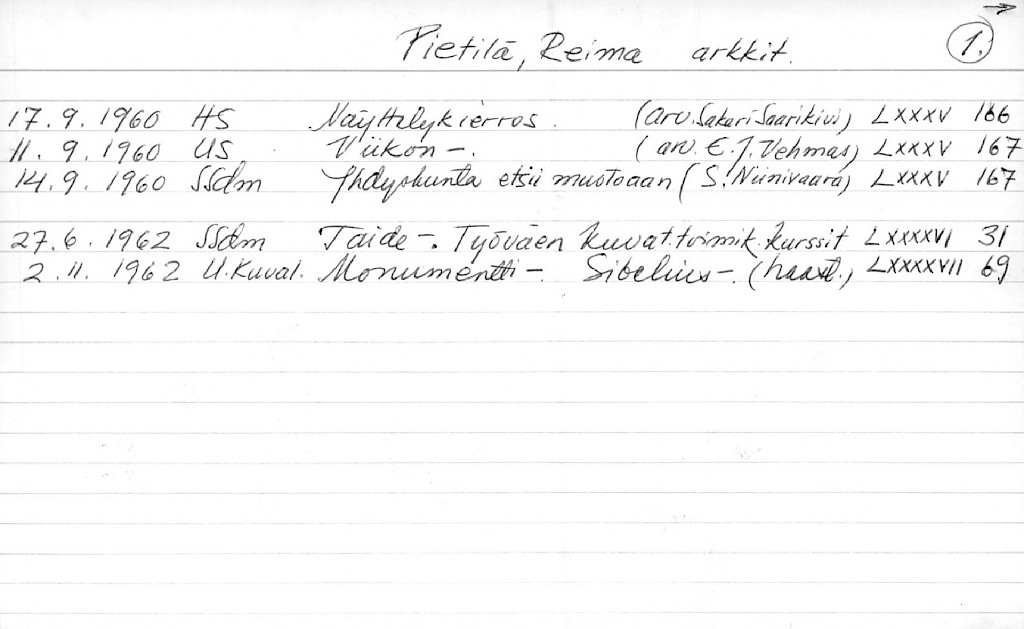 Pietilä, Reima arkkit. 1.
17. 9. 1960 HS Näyttelykierros. (arv. Sakari Saarikivi) LXXXV 166
11. 9. 1960 US Viikon –. (arv. E. J. Vehmas) LXXXV 167
14. 9. 1960 SSdm Yhdyskunta etsii muotoaan (S. Niinivaara) LXXXV 167
27. 6. 1962 SSdm Taide –. Työväen kuvat. toimik. kurssit LXXXXVI 31
2. 11. 1962 U. Kuval. Monumentti –. Sibelius –. (haast.) LXXXXVII 69